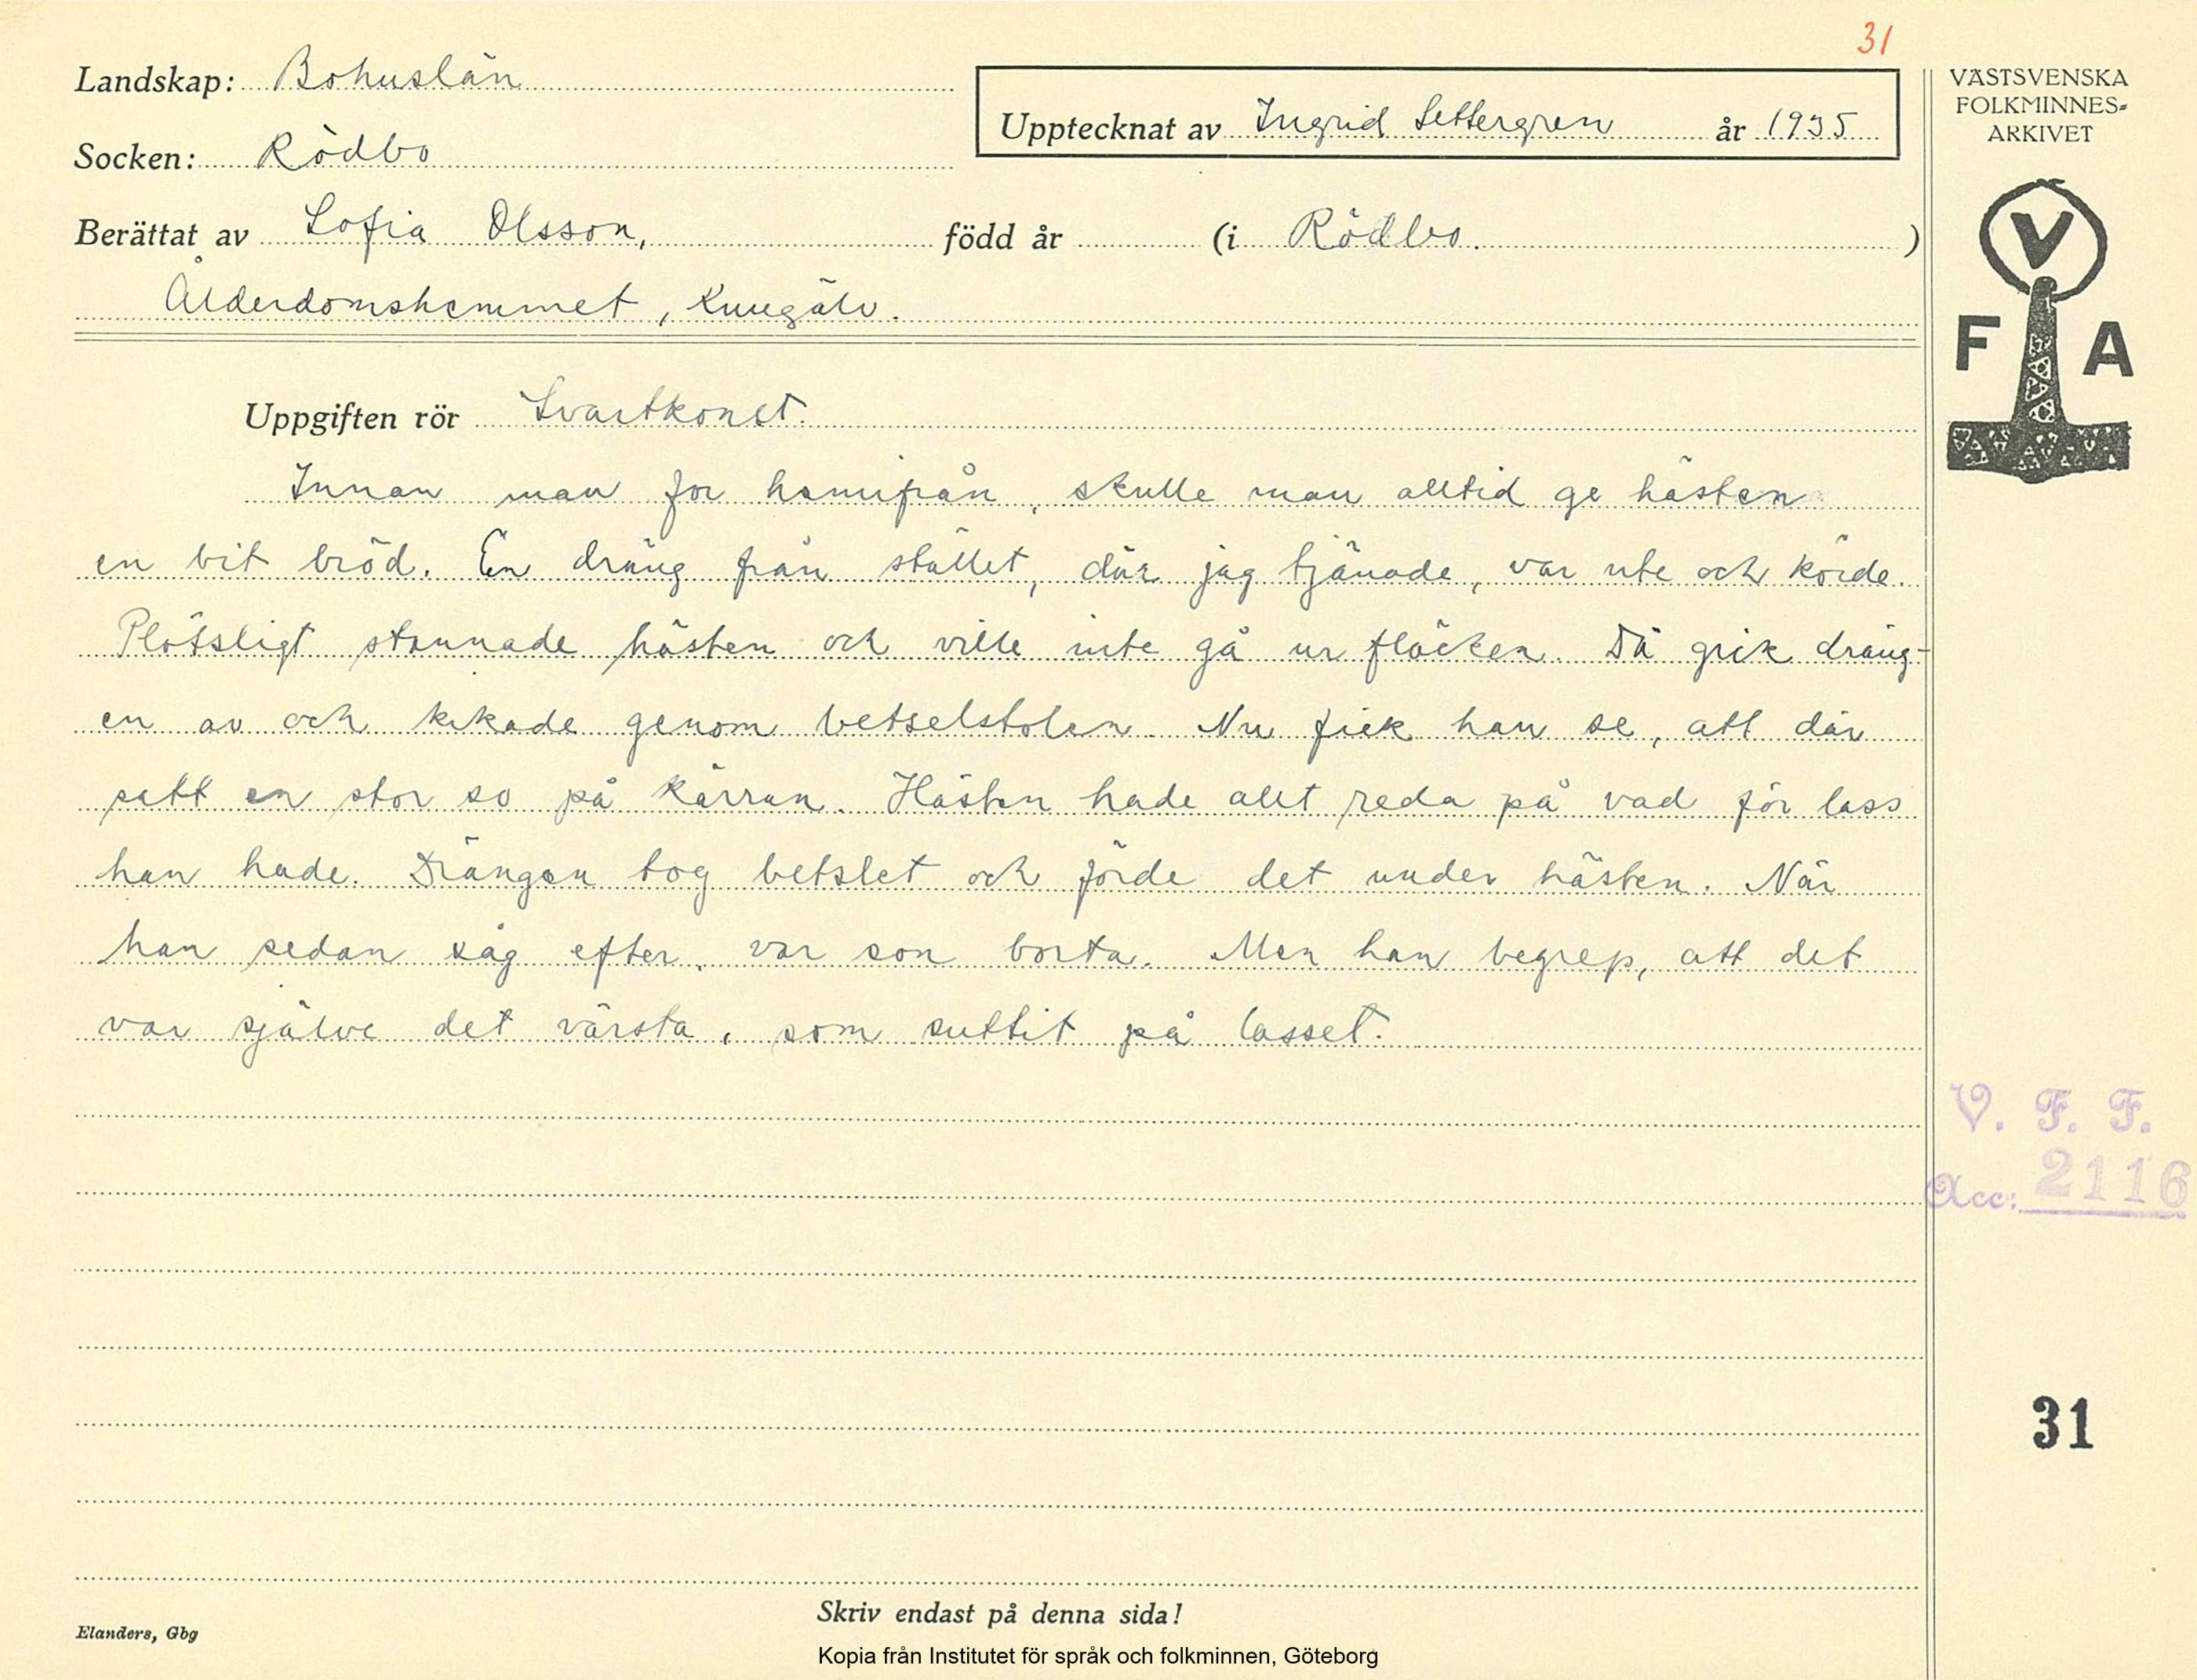 31
Landskap: Bohuslän
Socken: Rödbo
Upptecknat av Ingrid Settergren år 1935
Berättat av Sofia Olsson, född år (i Rödbo. )
Ålderdomshemmet, Kungälv.
Uppgiften rör Svartkonst.
Innan man for hemifrån, skulle man alltid ge hästen
en bit bröd. En dräng från stället, där jag tjänade, var ute och körde.
Plötsligt stannade hästen och ville inte gå ur fläcken. Då gick dräng-
en av och kikade genom betselstolen. Nu fick han se, att där
satt en stor so på kärran. Hästen hade allt reda på vad för lass
han hade. Drängen tog betslet och förde det under hästen. När
han sedan såg efter, var son borta. Men han begrep, att det
var själve det värsta, som suttit på lasset.
Skriv endast på denna sida!
Elanders, Gbg
Kopia från Institutet för språk och folkminnen, Göteborg
VÄSTSVENSKA
FOLKMINNES-
ARKIVET
V
F A
V. F. F.
Acc: 2116
31